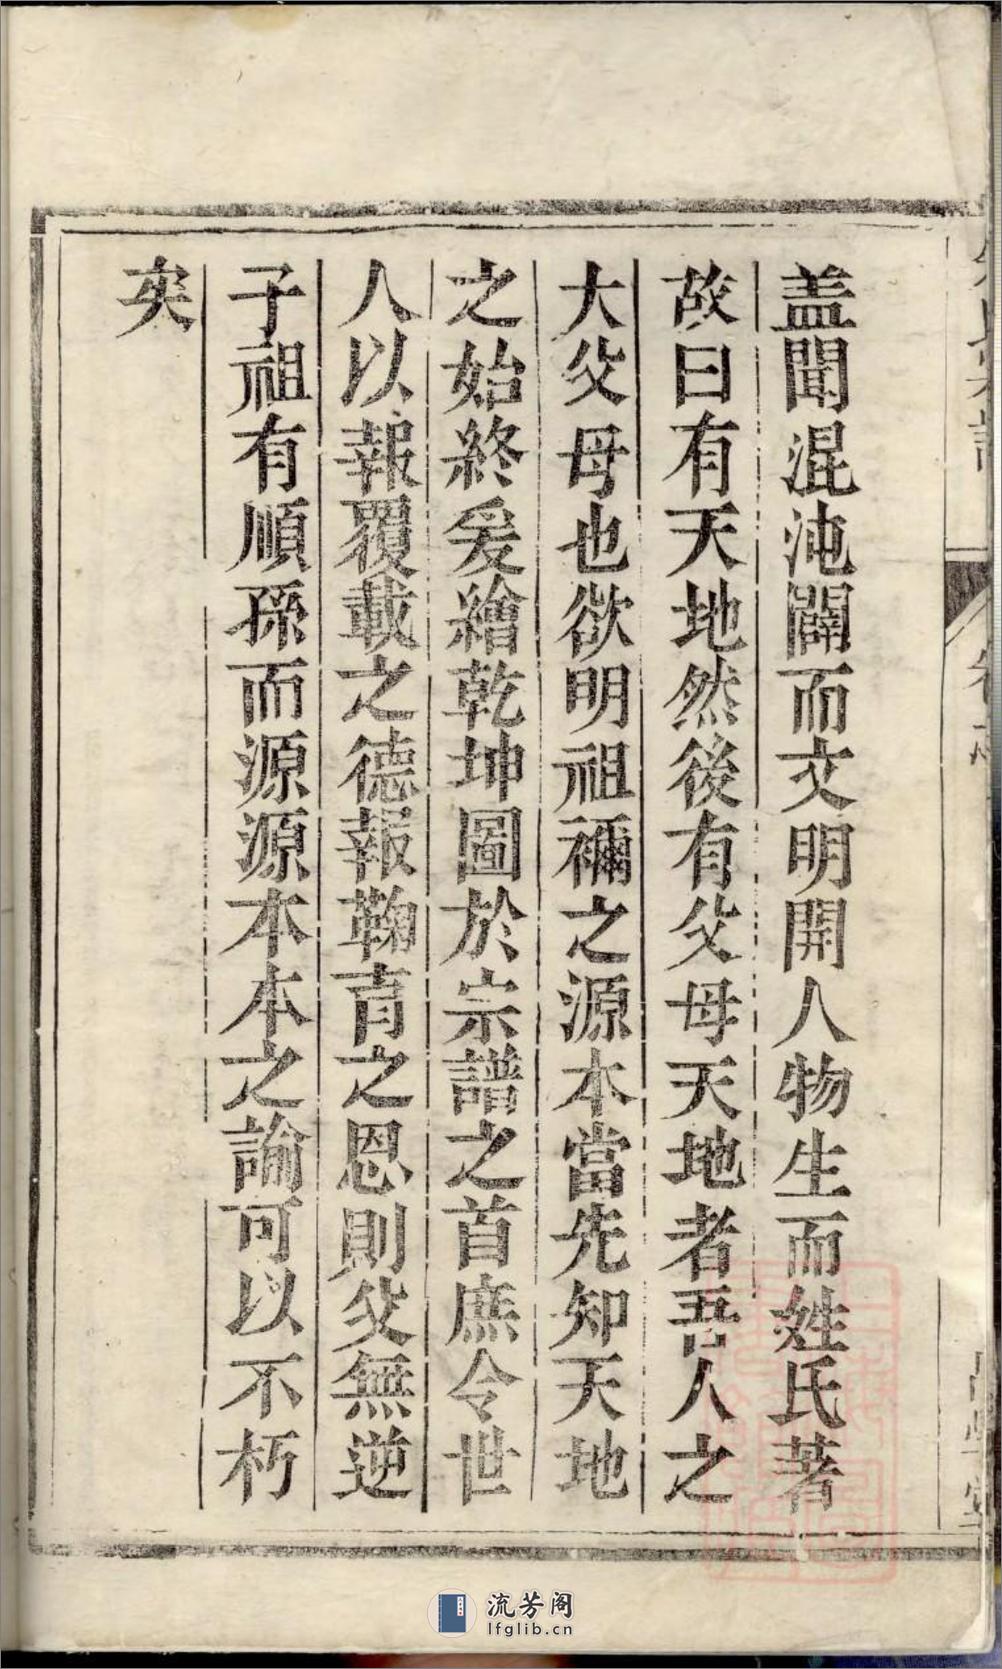 盖聞混沌闢而文明開人物生而姓氏著
故曰有天地然後有父母天地者吾人之
大父母也欲明祖禰之源本當先知天地
之始終爰繪乾坤圖於宗譜之首庶令世
人以報覆載之德報鞠育之恩則父無逆
子祖有順孫而源源本本之諭可以不朽
矣
流芳阁
lfglib.cn